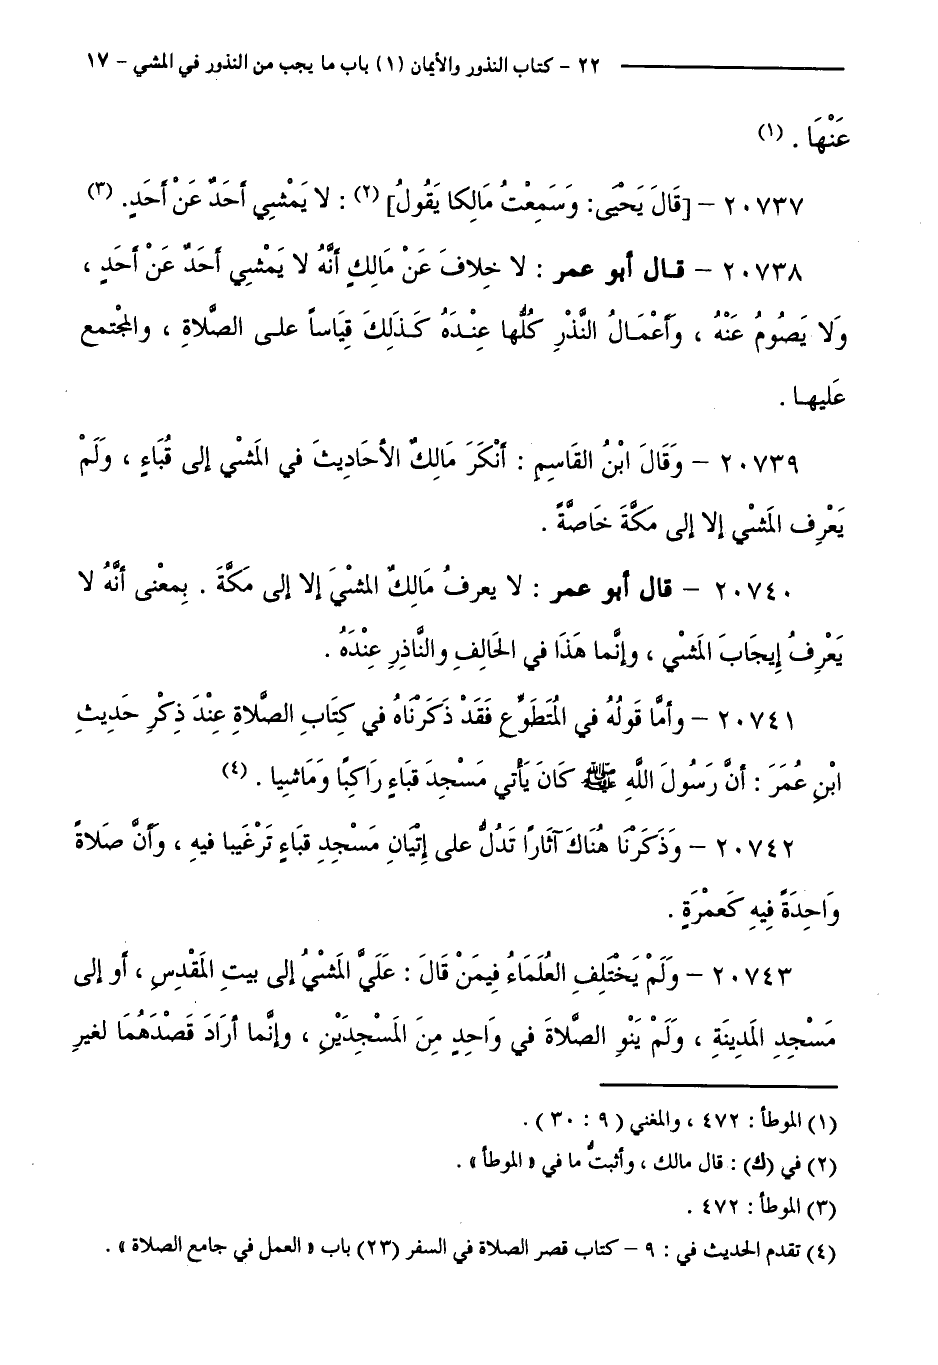 ٢٢ - كتاب النذور والأيمان (١) باب ما يجب من النذور في المشي - ١٧
عَنْهَا . (١)
٢٠٧٣٧ - [قَالَ يَحْيَى: وَسَمِعْتُ مَالِكا يَقُولُ] (٢) : لا يَمْشِي أَحَدٌ عَنْ أَحَدٍ. (٣)
٢٠٧٣٨ - قـال أبو عمر : لا خلافَ عَنْ مَالِكٍ أنَّهُ لا يَمْشِي أَحَدٌ عَنْ أَحَدٍ ،
وَلا يَصُومُ عَنْهُ ، وَأَعْمَـالُ النَّذْرِ كُلُّها عِنْـدَهُ كَـذَلِكَ قِيَاساً علـى الصَّلاةِ ، والمجْتمع
عَليهـا .
٢٠٧٣٩ - وَقَالَ ابْنُ القَاسِمِ : أَنْكَرَ مَالِكٌ الأحَادِيثَ في المَشْي إلى قُبَاءٍ ، وَلَمْ
يَعْرِف المَشْي إلا إلى مَكَّةَ خَاصَّةً .
٢٠٧٤٠ - قال أبو عمر : لا يعرفُ مَالِكٌ المشْيَ إلا إلى مَكَّةَ . بِمعْنى أنَّهُ لا
يَعْرِفُ إيجَابَ المَشْي ، وإنَّما هَذَا في الحَالِفِ والنَّاذِرِ عِنْدَهُ .
٢٠٧٤١ - وأمَّا قَولُهُ في المُتَطَوِّعِ فَقَدْ ذَكَرْنَاهُ في كِتَابِ الصَّلاةِ عِنْدَ ذِكْرِ حَدِيثِ
ابْنِ عُمَرَ : أنَّ رَسُولَ اللَّهِ ﷺ كَانَ يَأْتي مَسْجِدَ قبَاءٍ رَاكِبًا وَمَاشيِا . (٤)
٢٠٧٤٢ - وَذَكَرْنَا هُنَاكَ آثَارًا تَدُلُّ على إتْيَانِ مَسْجِدِ قبَاءٍ تَرْغيبا فيهِ ، وَأَنَّ صَلاةً
وَاحِدَةً فِيهِ كَعمْرَةٍ .
٢٠٧٤٣ - وَلَمْ يَخْتَلِفِ العُلَمَاءُ فِيمَنْ قَالَ : عَلَيَّ المَشْيُ إلى بيتِ المَقْدِسِ ، أو إلى
مَسْجِدِ المَدِينَةِ ، وَلَمْ يَنْوِ الصَّلاةَ في وَاحِدٍ مِنَ المَسْجِدَيْنِ ، وإنَّما أرَادَ قَصْدَهُمَا لغيرِ
(١) الموطأ : ٤٧٢ ، والمغني ( ٩ : ٣٠ ) .
(٢) في (ك) : قال مالك ، وأثبتُّ ما في « الموطأ » .
(٣) الموطأ : ٤٧٢ .
(٤) تقدم الحديث في : ٩ - كتاب قصر الصلاة في السفر (٢٣) باب « العمل في جامع الصلاة » .